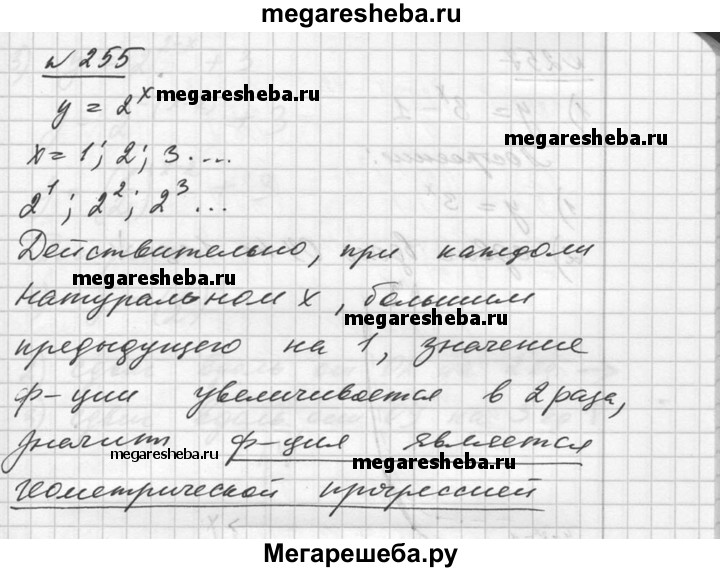 megaresheba.ru
№ 255
y = 2^x megaresheba.ru
x = 1; 2; 3 ....
megaresheba.ru
2^1; 2^2; 2^3 ...
Действительно, при каждом
megaresheba.ru
натуральном x, большим
megaresheba.ru
предыдущего на 1, значение
ф-ции увеличивается в 2 раза,
значит ф-ция является
megaresheba.ru
megaresheba.ru
геометрической прогрессией
Мегарешеба.ру